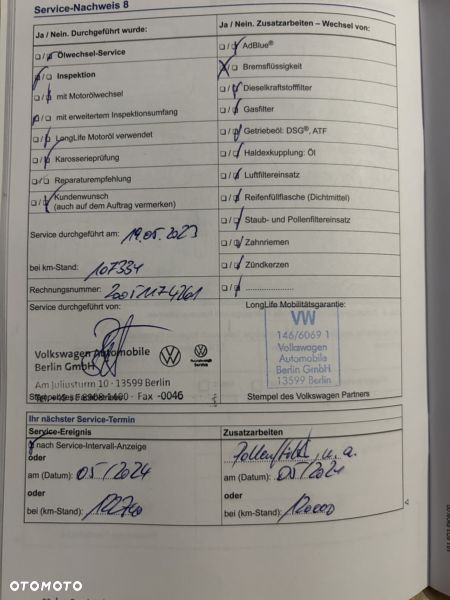 Service-Nachweis 8
Ja / Nein. Durchgeführt wurde:
Ölwechsel-Service
Inspektion
mit Motorölwechsel
mit erweitertem Inspektionsumfang
LongLife Motoröl verwendet
Karosserieprüfung
Reparaturempfehlung
Kundenwunsch
(auch auf dem Auftrag vermerken)
Service durchgeführt am: 19.05.2023
bei km-Stand: 107334
Rechnungsnummer:
Service durchgeführt von:
Volkswagen Automobile
Berlin GmbH
Am Juliusturm 10 · 13599 Berlin
Fax -0046
Ja / Nein. Zusatzarbeiten – Wechsel von:
AdBlue®
Bremsflüssigkeit
Dieselkraftstofffilter
Gasfilter
Getriebeöl: DSG®, ATF
Haldexkupplung: Öl
Luftfiltereinsatz
Reifenfüllflasche (Dichtmittel)
Staub- und Pollenfiltereinsatz
Zahnriemen
Zündkerzen
LongLife Mobilitätsgarantie:
VW
146/6069 1
Volkswagen
Automobile
Berlin GmbH
13599 Berlin
Stempel des Volkswagen Partners
Ihr nächster Service-Termin
Service-Ereignis
nach Service-Intervall-Anzeige
oder
am (Datum): 05/2024
oder
bei (km-Stand):
Zusatzarbeiten
u.a.
am (Datum): 05/2024
oder
bei (km-Stand): 120000
OTOMOTO